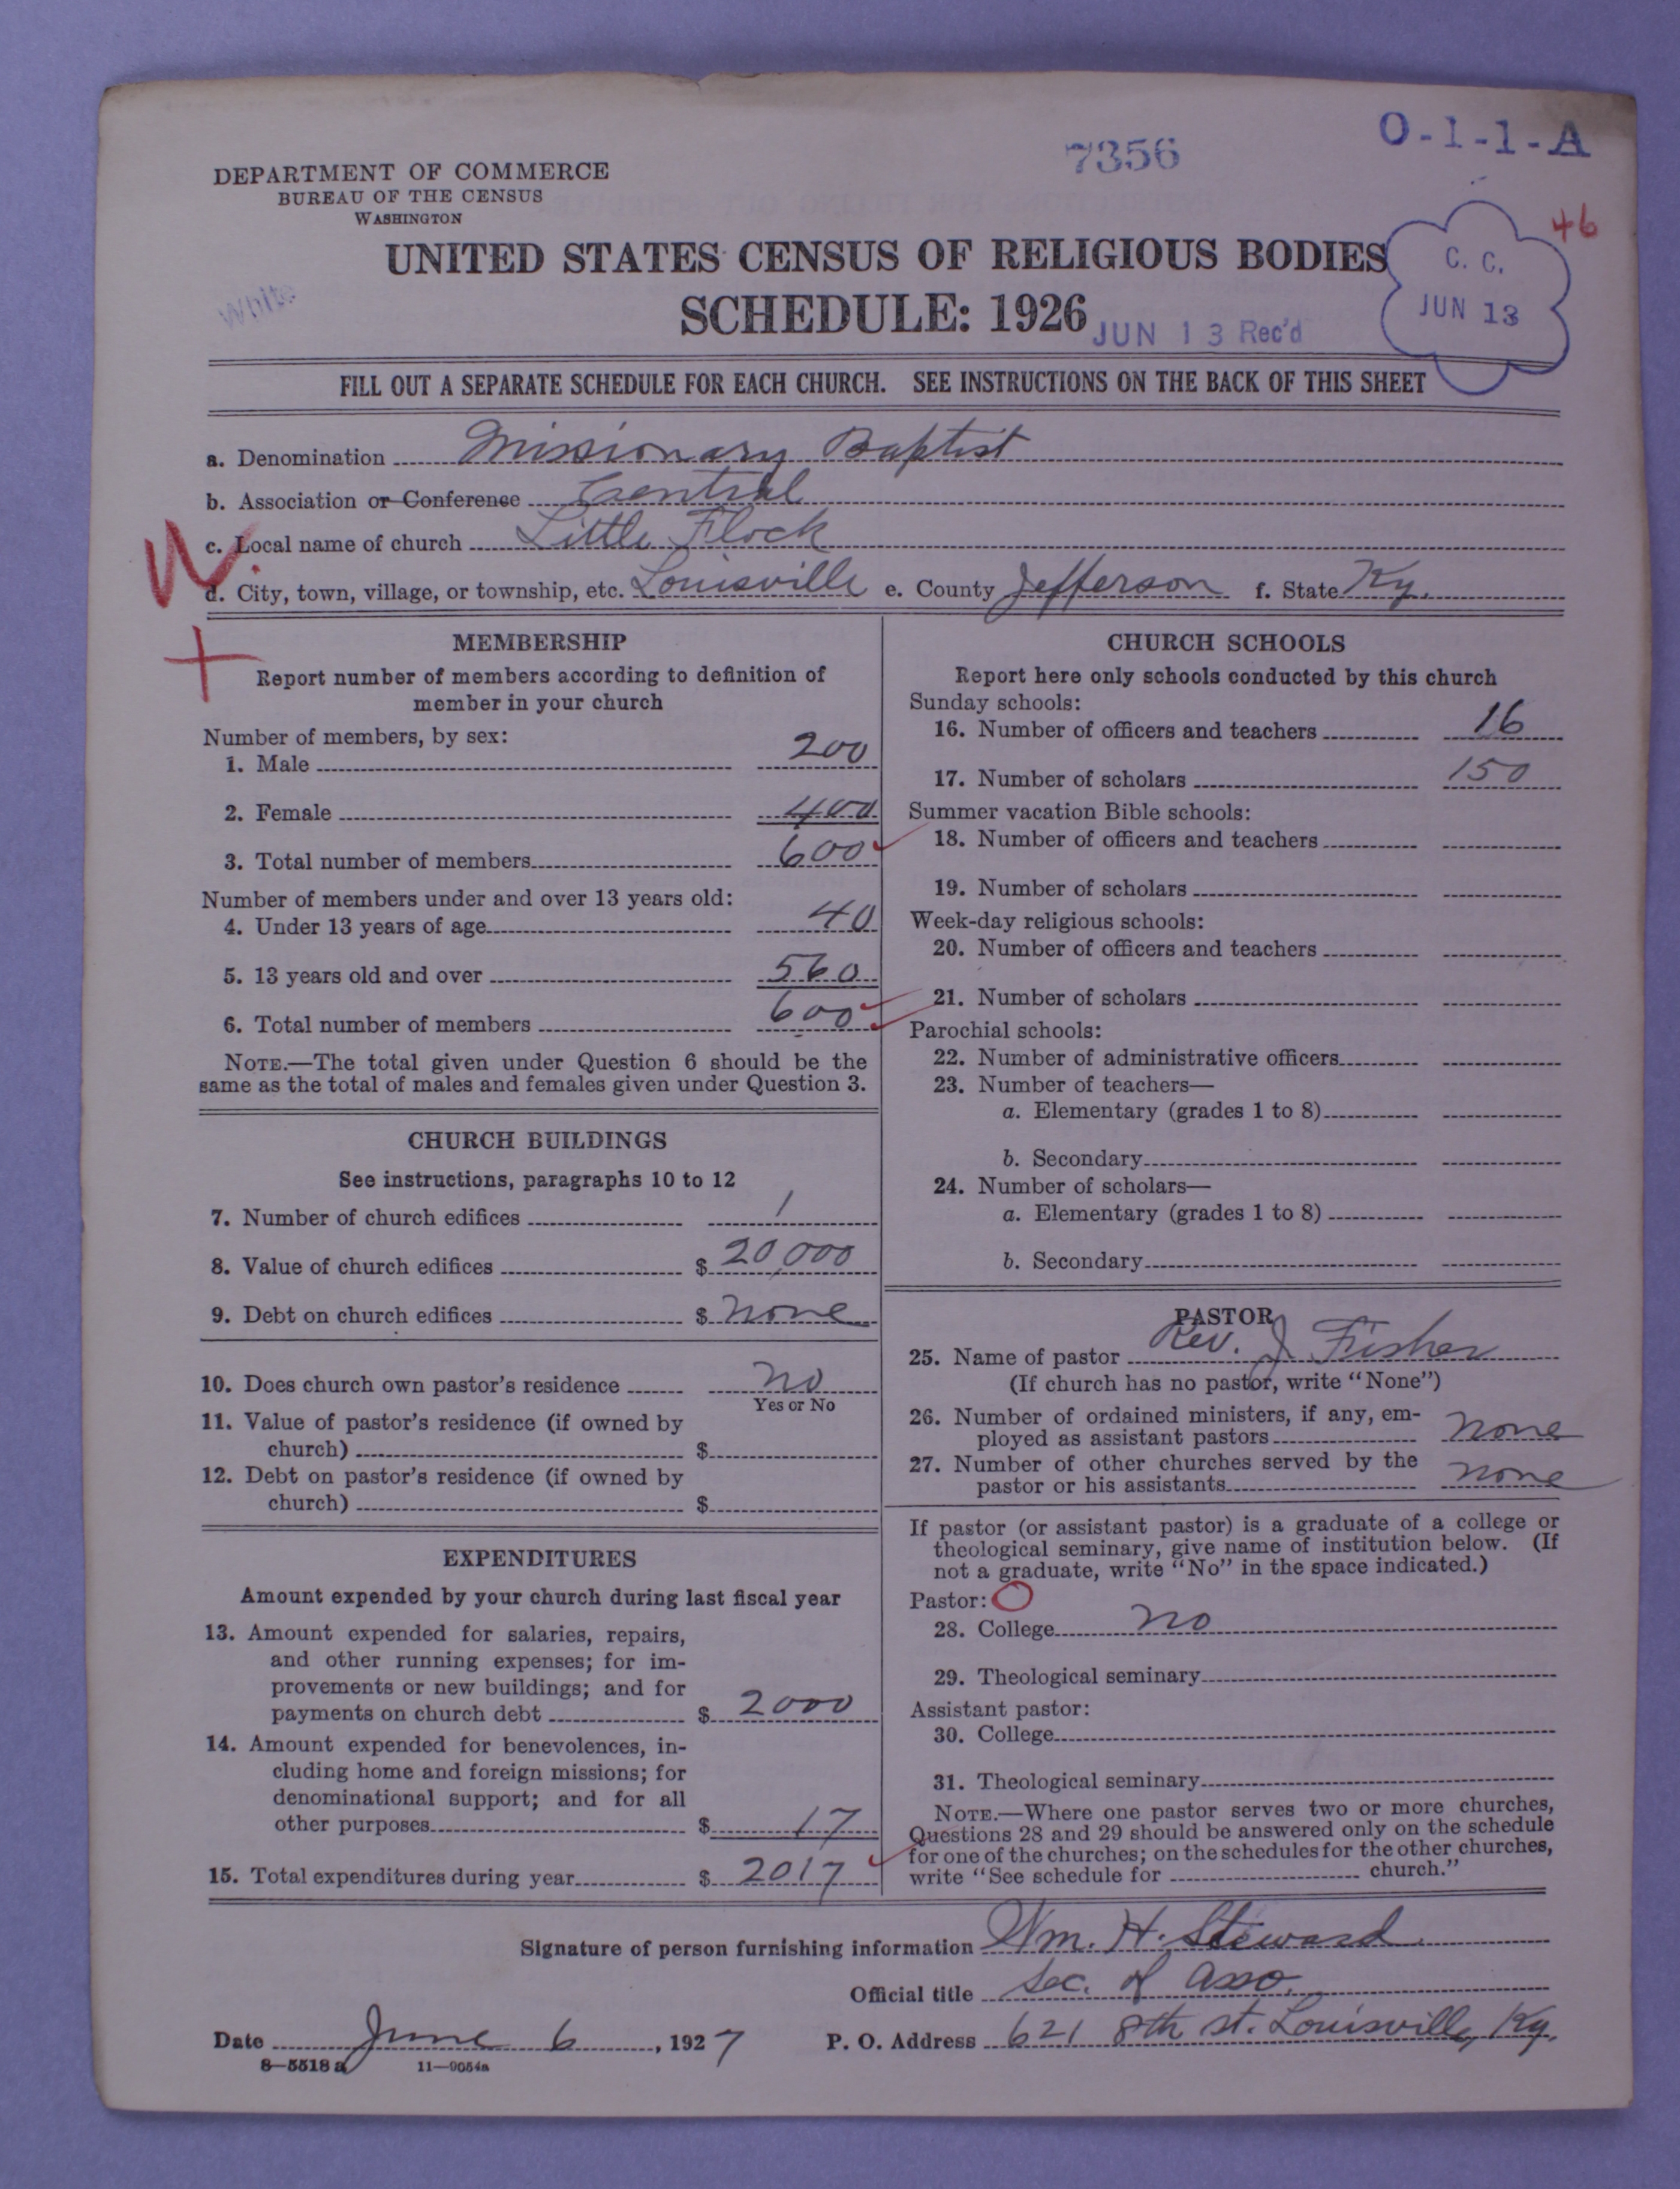 O-1-1-A
7356
DEPARTMENT OF COMMERCE
BUREAU OF THE CENSUS
WASHINGTON
46
UNITED STATES CENSUS OF RELIGIOUS BODIES
C. C.
JUN 13
White
SCHEDULE: 1926
JUN 13 Rec'd
FILL OUT A SEPARATE SCHEDULE FOR EACH CHURCH. SEE INSTRUCTIONS ON THE BACK OF THIS SHEET
a. Denomination Missionary Baptist
b. Association or Conference Central
c. Local name of church Little Flock
W.
d. City, town, village, or township, etc. Louisville e. County Jefferson f. State Ky.
+
MEMBERSHIP
Report number of members according to definition of
member in your church
Number of members, by sex:
1. Male 200
2. Female 400
3. Total number of members 600
Number of members under and over 13 years old:
4. Under 13 years of age 40
5. 13 years old and over 560
6. Total number of members 600
NOTE.—The total given under Question 6 should be the
same as the total of males and females given under Question 3.
CHURCH BUILDINGS
See instructions, paragraphs 10 to 12
7. Number of church edifices 1
8. Value of church edifices $ 20,000
9. Debt on church edifices $ none
10. Does church own pastor's residence no
Yes or No
11. Value of pastor's residence (if owned by
church) $
12. Debt on pastor's residence (if owned by
church) $
EXPENDITURES
Amount expended by your church during last fiscal year
13. Amount expended for salaries, repairs,
and other running expenses; for im-
provements or new buildings; and for
payments on church debt $ 2000
14. Amount expended for benevolences, in-
cluding home and foreign missions; for
denominational support; and for all
other purposes $ 17
15. Total expenditures during year $ 2017
CHURCH SCHOOLS
Report here only schools conducted by this church
Sunday schools:
16. Number of officers and teachers 16
17. Number of scholars 150
Summer vacation Bible schools:
18. Number of officers and teachers
19. Number of scholars
Week-day religious schools:
20. Number of officers and teachers
21. Number of scholars
Parochial schools:
22. Number of administrative officers
23. Number of teachers—
a. Elementary (grades 1 to 8)
b. Secondary
24. Number of scholars—
a. Elementary (grades 1 to 8)
b. Secondary
PASTOR
25. Name of pastor Rev. J Fisher
(If church has no pastor, write "None")
26. Number of ordained ministers, if any, em-
ployed as assistant pastors none
27. Number of other churches served by the
pastor or his assistants none
If pastor (or assistant pastor) is a graduate of a college or
theological seminary, give name of institution below. (If
not a graduate, write "No" in the space indicated.)
Pastor: O
28. College no
29. Theological seminary
Assistant pastor:
30. College
31. Theological seminary
NOTE.—Where one pastor serves two or more churches,
Questions 28 and 29 should be answered only on the schedule
for one of the churches; on the schedules for the other churches,
write "See schedule for church."
Signature of person furnishing information Wm. H. Steward
Official title Sec. of Asso.
Date June 6, 1927 P. O. Address 621 8th st. Louisville, Ky.
8—5518 a 11—9054a